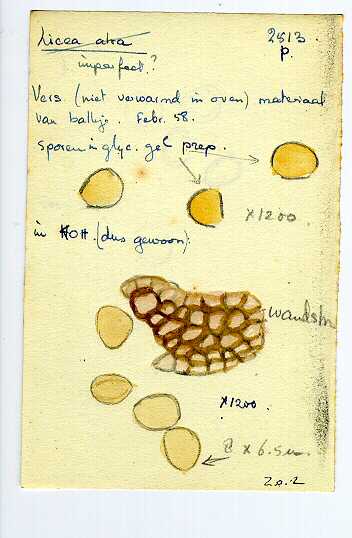 Licea atra
2813
p.
imperfect?
Vers. (niet verwarmd in oven) materiaal
van balkje. Febr. 58.
Sporen in glyc. gel prep.
x1200.
in HOH. (dus gewoon):
x1200.
8 x 6.5 u.